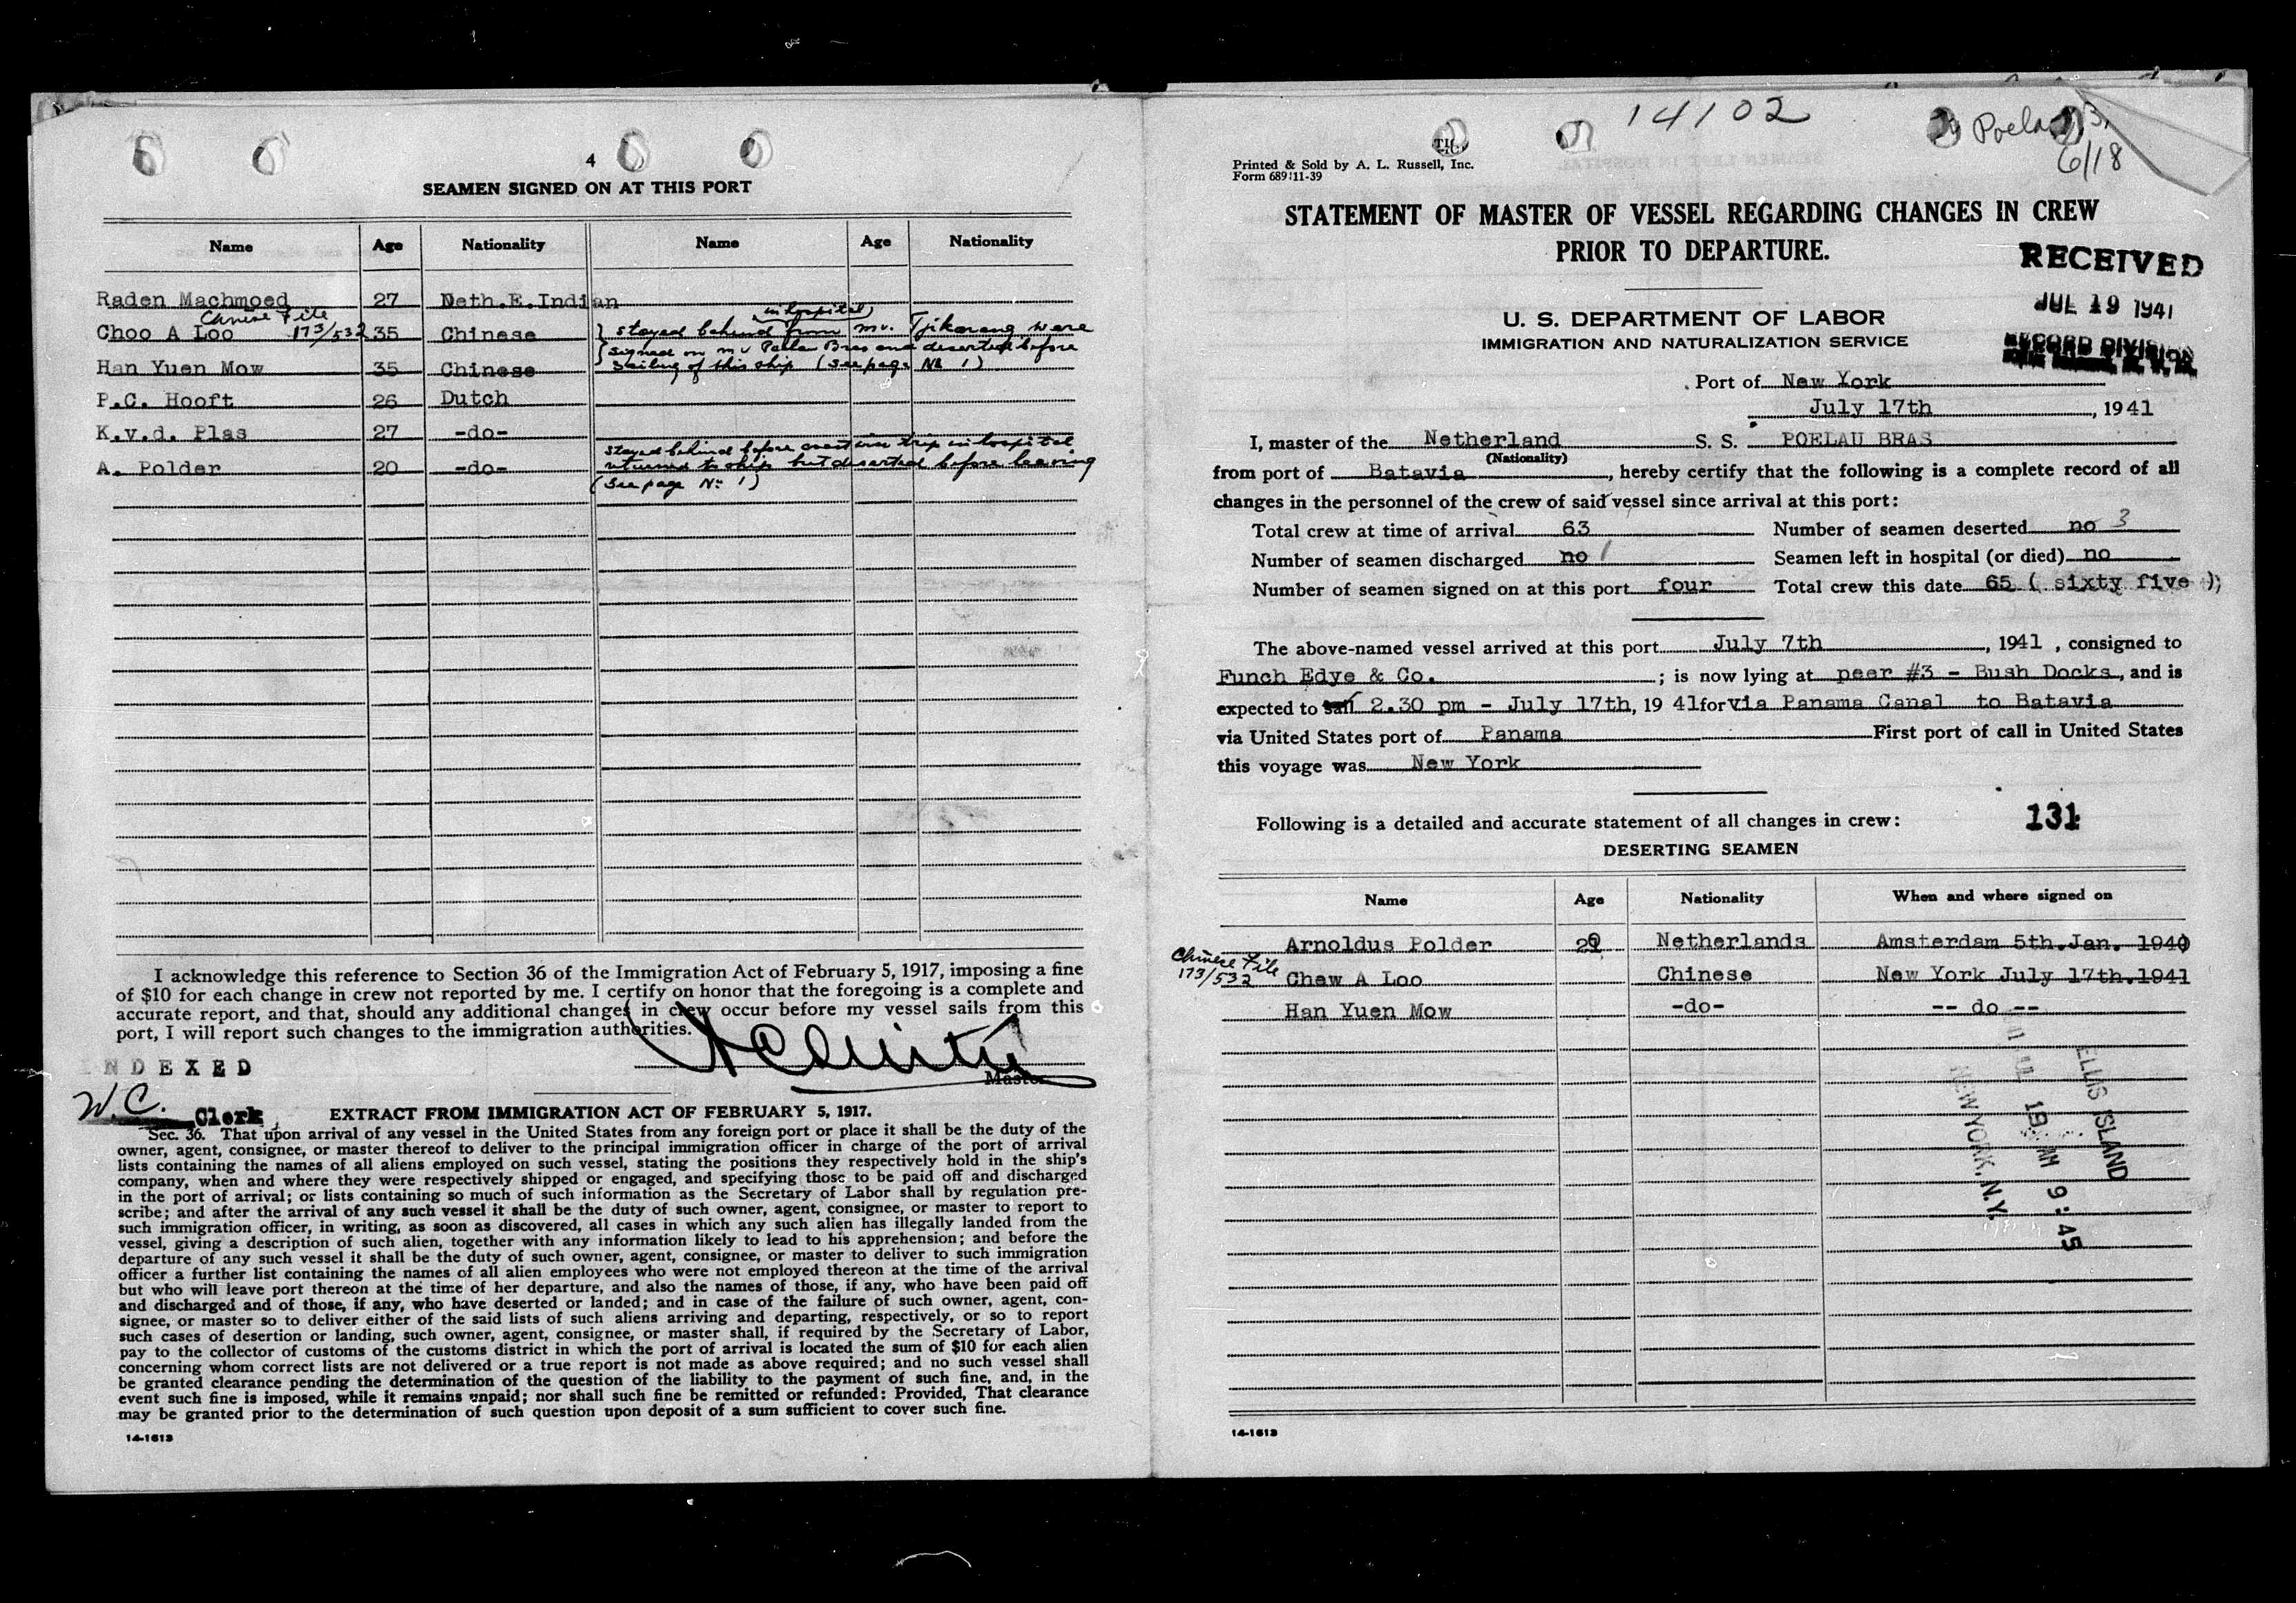 4
SEAMEN SIGNED ON AT THIS PORT
Name Age Nationality Name Age Nationality
Raden Machmoed 27 Neth.E.Indian
Chinese File
in hospital
Choo A Loo 173/532 35 Chinese stayed behind from mv. Tjikarang were
signed on mv Poelau Bras and deserted before
Han Yuen Mow 35 Chinese sailing of this ship (see page No 1)
P.C. Hooft 26 Dutch
K.v.d. Plas 27 -do-
stayed behind before coastwise trip in hospital
A. Polder 20 -do- returned to ship but deserted before leaving
(see page No 1)
I acknowledge this reference to Section 36 of the Immigration Act of February 5, 1917, imposing a fine
of $10 for each change in crew not reported by me. I certify on honor that the foregoing is a complete and
accurate report, and that, should any additional changes in crew occur before my vessel sails from this
port, I will report such changes to the immigration authorities.
INDEXED
Master
W.C. Clerk
EXTRACT FROM IMMIGRATION ACT OF FEBRUARY 5, 1917.
Sec. 36. That upon arrival of any vessel in the United States from any foreign port or place it shall be the duty of the
owner, agent, consignee, or master thereof to deliver to the principal immigration officer in charge of the port of arrival
lists containing the names of all aliens employed on such vessel, stating the positions they respectively hold in the ship's
company, when and where they were respectively shipped or engaged, and specifying those to be paid off and discharged
in the port of arrival; or lists containing so much of such information as the Secretary of Labor shall by regulation pre-
scribe; and after the arrival of any such vessel it shall be the duty of such owner, agent, consignee, or master to report to
such immigration officer, in writing, as soon as discovered, all cases in which any such alien has illegally landed from the
vessel, giving a description of such alien, together with any information likely to lead to his apprehension; and before the
departure of any such vessel it shall be the duty of such owner, agent, consignee, or master to deliver to such immigration
officer a further list containing the names of all alien employees who were not employed thereon at the time of the arrival
but who will leave port thereon at the time of her departure, and also the names of those, if any, who have been paid off
and discharged and of those, if any, who have deserted or landed; and in case of the failure of such owner, agent, con-
signee, or master so to deliver either of the said lists of such aliens arriving and departing, respectively, or so to report
such cases of desertion or landing, such owner, agent, consignee, or master shall, if required by the Secretary of Labor,
pay to the collector of customs of the customs district in which the port of arrival is located the sum of $10 for each alien
concerning whom correct lists are not delivered or a true report is not made as above required; and no such vessel shall
be granted clearance pending the determination of the question of the liability to the payment of such fine, and, in the
event such fine is imposed, while it remains unpaid; nor shall such fine be remitted or refunded: Provided, That clearance
may be granted prior to the determination of such question upon deposit of a sum sufficient to cover such fine.
14-1613
14102
6/18
Printed & Sold by A. L. Russell, Inc.
Form 689 11-39
STATEMENT OF MASTER OF VESSEL REGARDING CHANGES IN CREW
PRIOR TO DEPARTURE.
RECEIVED
JUL 19 1941
RECORD DIVISION
U. S. DEPARTMENT OF LABOR
IMMIGRATION AND NATURALIZATION SERVICE
Port of New York
July 17th, 1941
I, master of the Netherland S. S. POELAU BRAS
(Nationality)
from port of Batavia, hereby certify that the following is a complete record of all
changes in the personnel of the crew of said vessel since arrival at this port:
Total crew at time of arrival 63 Number of seamen deserted no 3
Number of seamen discharged no 1 Seamen left in hospital (or died) no
Number of seamen signed on at this port four Total crew this date 65 ( sixty five );
The above-named vessel arrived at this port July 7th, 1941, consigned to
Funch Edye & Co. ; is now lying at peer #3 - Bush Docks, and is
expected to sail 2.30 pm - July 17th, 1941 for via Panama Canal to Batavia
via United States port of Panama First port of call in United States
this voyage was New York
Following is a detailed and accurate statement of all changes in crew: 131
DESERTING SEAMEN
Name Age Nationality When and where signed on
Arnoldus Polder Netherlands Amsterdam 5th.Jan. 1940
Chinese File
173/532 Chew A Loo Chinese New York July 17th.1941
Han Yuen Mow -do- -- do --
ELLIS ISLAND
JUL 19 AM 9:45
NEW YORK, N.Y.
14-1613